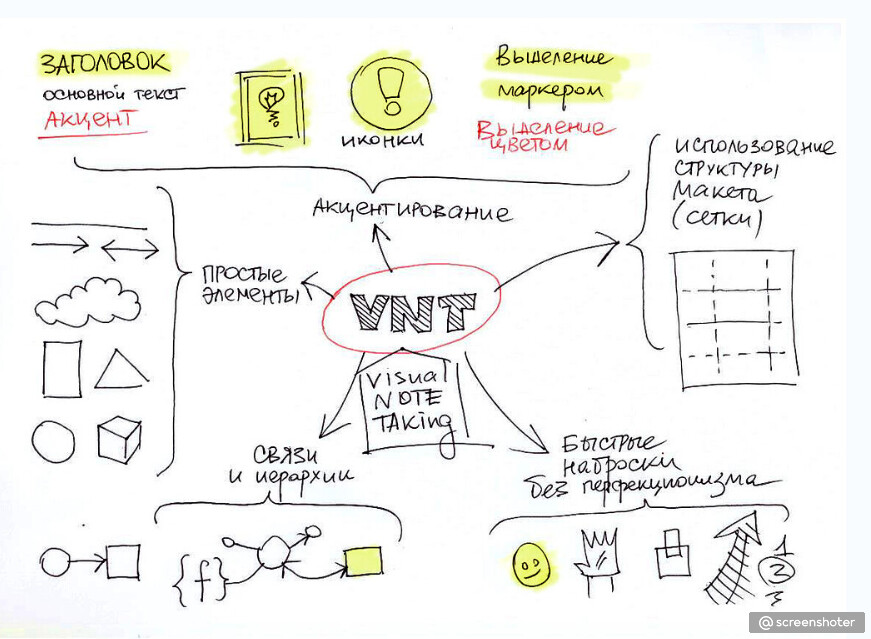 ЗАГОЛОВОК
основной текст
АКЦЕНТ
иконки
Выделение
маркером
Выделение
цветом
Использование
структуры
макета
(сетки)
Акцентирование
Простые
элементы
VNT
Visual
NOTE
TAKing
Связи
и иерархии
Быстрые
наброски
без перфекционизма
{f}
1
2
3
@screenshoter